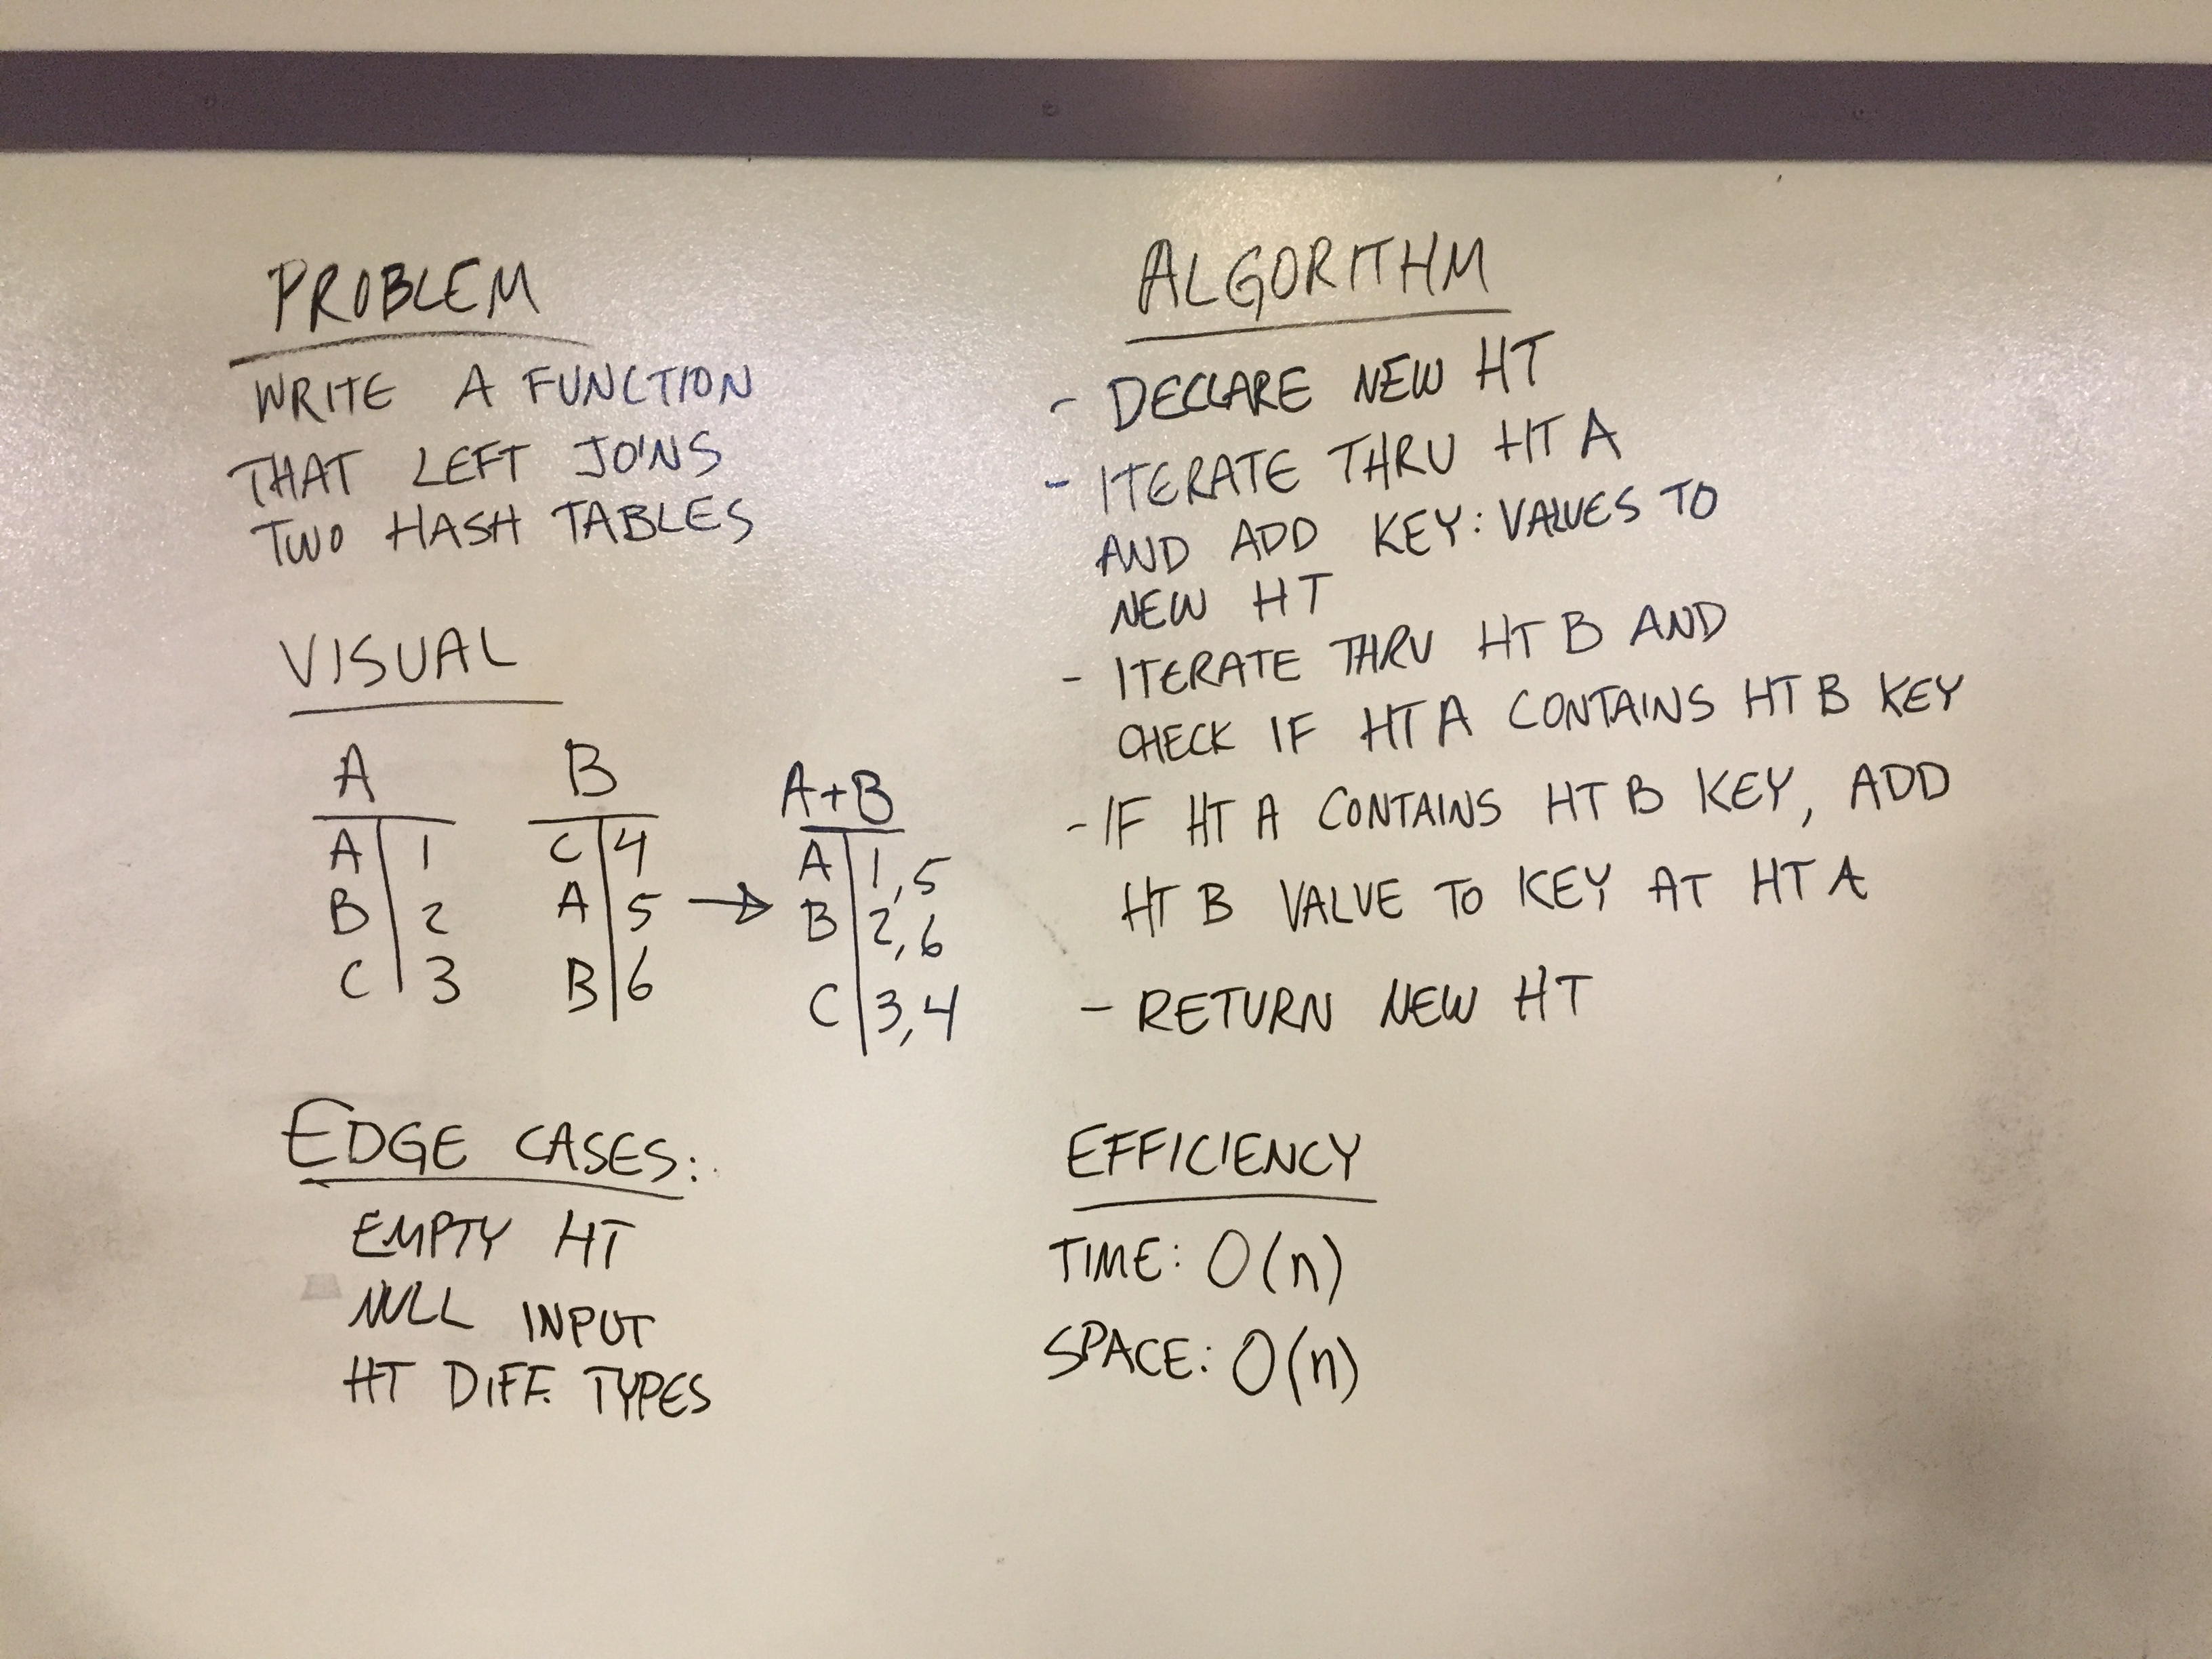 PROBLEM
WRITE A FUNCTION
THAT LEFT JOINS
TWO HASH TABLES
VISUAL
A B A+B
A 1 C 4 A 1,5
B 2 A 5 → B 2,6
C 3 B 6 C 3,4
EDGE CASES:
EMPTY HT
NULL INPUT
HT DIFF. TYPES
ALGORITHM
- DECLARE NEW HT
- ITERATE THRU HT A
AND ADD KEY: VALUES TO
NEW HT
- ITERATE THRU HT B AND
CHECK IF HT A CONTAINS HT B KEY
- IF HT A CONTAINS HT B KEY, ADD
HT B VALUE TO KEY AT HT A
- RETURN NEW HT
EFFICIENCY
TIME: O(n)
SPACE: O(n)